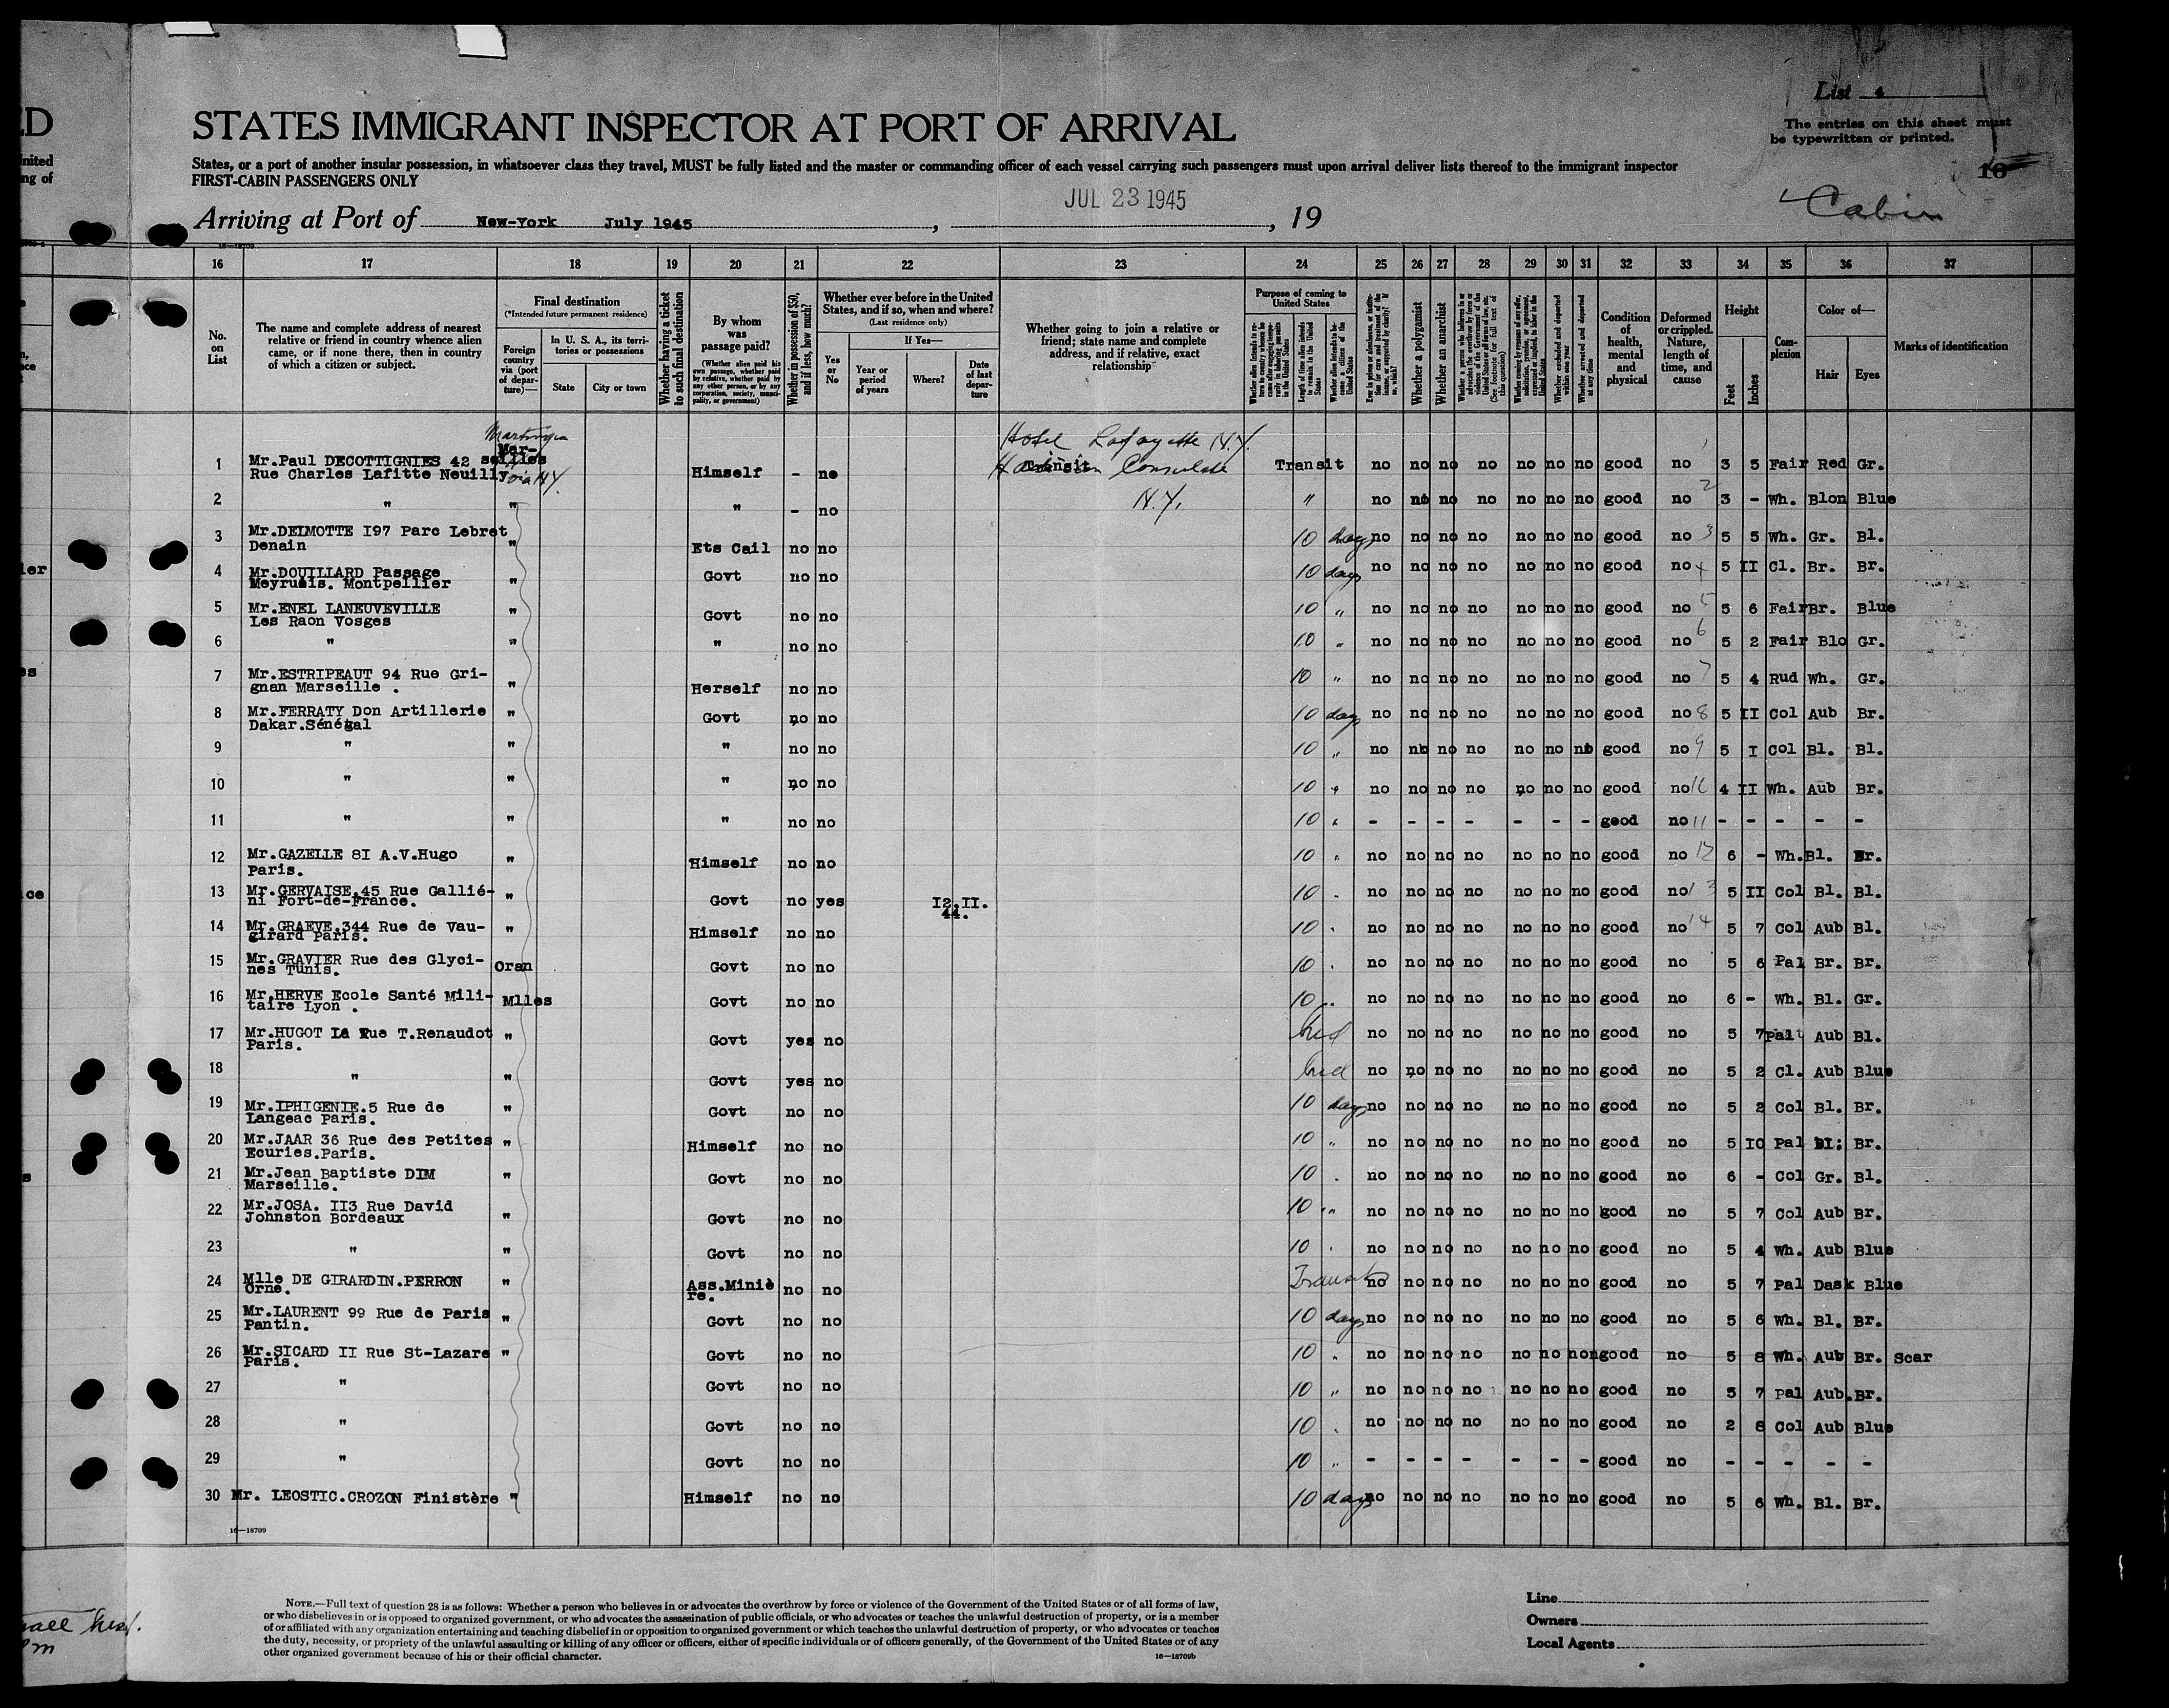 List 4
The entries on this sheet must
be typewritten or printed.
ED
STATES IMMIGRANT INSPECTOR AT PORT OF ARRIVAL
States, or a port of another insular possession, in whatsoever class they travel, MUST be fully listed and the master or commanding officer of each vessel carrying such passengers must upon arrival deliver lists thereof to the immigrant inspector
FIRST-CABIN PASSENGERS ONLY
10
Cabin
JUL 23 1945
Arriving at Port of New-York July 1945, , 19
16 17 18 19 20 21 22 23 24 25 26 27 28 29 30 31 32 33 34 35 36 37
No. on List
The name and complete address of nearest relative or friend in country whence alien came, or if none there, then in country of which a citizen or subject.
Final destination
(*Intended future permanent residence)
Foreign country via (port of departure)—
In U. S. A., its territories or possessions
State
City or town
Whether having a ticket to such final destination
By whom was passage paid?
(Whether alien paid his own passage, whether paid by relative, whether paid by any other person, or by any corporation, society, municipality, or government)
Whether in possession of $50, and if less, how much?
Whether ever before in the United States, and if so, when and where?
(Last residence only)
Yes or No
If Yes—
Year or period of years
Where?
Date of last departure
Whether going to join a relative or friend; state name and complete address, and if relative, exact relationship
Purpose of coming to United States
Whether a polygamist
Whether an anarchist
Condition of health, mental and physical
Deformed or crippled. Nature, length of time, and cause
Height
Feet
Inches
Complexion
Color of—
Hair
Eyes
Marks of identification
Hotel Lafayette N.Y.
1 Mr.Paul DECOTTIGNIES 42 Rue Charles Lafitte Neuilly Marseilles via NY. Himself - no Transit Consulate Transit no no no no no no no good no 3 5 Fair Red Gr.
2 " " " - no N.Y. " no no no no no no no good no 3 - Wh. Blon Blue
3 Mr.DELMOTTE I97 Parc Lebret Denain " Ets Cail no no 10 days no no no no no no no good no 5 5 Wh. Gr. Bl.
4 Mr.DOUILLARD Passage Meyrueis. Montpellier " Govt no no 10 days no no no no no no no good no 5 II Cl. Br. Br.
5 Mr.ENEL LANEUVEVILLE Les Raon Vosges " Govt no no 10 " no no no no no no no good no 5 6 Fair Br. Blue
6 " " " no no 10 " no no no no no no no good no 5 2 Fair Blo Gr.
7 Mr.ESTRIPEAUT 94 Rue Grignan Marseille . " Herself no no 10 " no no no no no no no good no 5 4 Rud Wh. Gr.
8 Mr.FERRATY Don Artillerie Dakar.Sénégal " Govt no no 10 days no no no no no no no good no 5 II Col Aub Br.
9 " " " no no 10 " no no no no no no no good no 5 I Col Bl. Bl.
10 " " " no no 10 " no no no no no no no good no 4 II Wh. Aub Br.
11 " " " no no 10 " - - - - - - - good no - - - - -
12 Mr.GAZELLE 8I A.V.Hugo Paris. " Himself no no 10 " no no no no no no no good no 6 - Wh. Bl. Br.
13 Mr.GERVAISE.45 Rue Galliéni Fort-de-France. " Govt no yes I2.II.44. 10 " no no no no no no no good no 5 II Col Bl. Bl.
14 Mr.GRAEVE.344 Rue de Vaugirard Paris. " Himself no no 10 " no no no no no no no good no 5 7 Col Aub Bl.
15 Mr.GRAVIER Rue des Glycines Tunis. Oran Govt no no 10 " no no no no no no no good no 5 6 Pal Br. Br.
16 Mr.HERVE Ecole Santé Militaire Lyon . Mlles Govt no no 10 " no no no no no no no good no 6 - Wh. Bl. Gr.
17 Mr.HUGOT Rue T.Renaudot Paris. " Govt yes no no no no no no no no good no 5 7 Pal Aub Bl.
18 " " Govt yes no no no no no no no no good no 5 2 Cl. Aub Blue
19 Mr.IPHIGENIE.5 Rue de Langeac Paris. " Govt no no 10 days no no no no no no no good no 5 2 Col Bl. Br.
20 Mr.JAAR 36 Rue des Petites Ecuries.Paris. " Himself no no 10 " no no no no no no no good no 5 I0 Pal Bl. Br.
21 Mr.Jean Baptiste DIM Marseille. " Govt no no 10 " no no no no no no no good no 6 - Col Gr. Bl.
22 Mr.JOSA. II3 Rue David Johnston Bordeaux " Govt no no 10 " no no no no no no no good no 5 7 Col Aub Br.
23 " " Govt no no 10 " no no no no no no no good no 5 4 Wh. Aub Blue
24 Mlle DE GIRARDIN.PERRON Orne. " Ass.Minière. no no Transit no no no no no no no good no 5 7 Pal Dask Blue
25 Mr.LAURENT 99 Rue de Paris Pantin. " Govt no no 10 days no no no no no no no good no 5 6 Wh. Bl. Br.
26 Mr.SICARD II Rue St-Lazare Paris. " Govt no no 10 " no no no no no no non good no 5 8 Wh. Aub Br. Scar
27 " Govt no no 10 " no no no no no no no good no 5 7 Pal Aub. Br.
28 " Govt no no 10 " no no no no no no no good no 2 8 Col Aub Blue
29 " Govt no no 10 " - - - - - - - good no - - - - -
30 Mr. LEOSTIC.CROZON Finistère " Himself no no 10 days no no no no no no no good no 5 6 Wh. Bl. Br.
16—18709
NOTE.—Full text of question 28 is as follows: Whether a person who believes in or advocates the overthrow by force or violence of the Government of the United States or of all forms of law,
or who disbelieves in or is opposed to organized government, or who advocates the assassination of public officials, or who advocates or teaches the unlawful destruction of property, or is a member
of or affiliated with any organization entertaining and teaching disbelief in or opposition to organized government or which teaches the unlawful destruction of property, or who advocates or teaches
the duty, necessity, or propriety of the unlawful assaulting or killing of any officer or officers, either of specific individuals or of officers generally, of the Government of the United States or of any
other organized government because of his or their official character.
16—18709b
Line
Owners
Local Agents